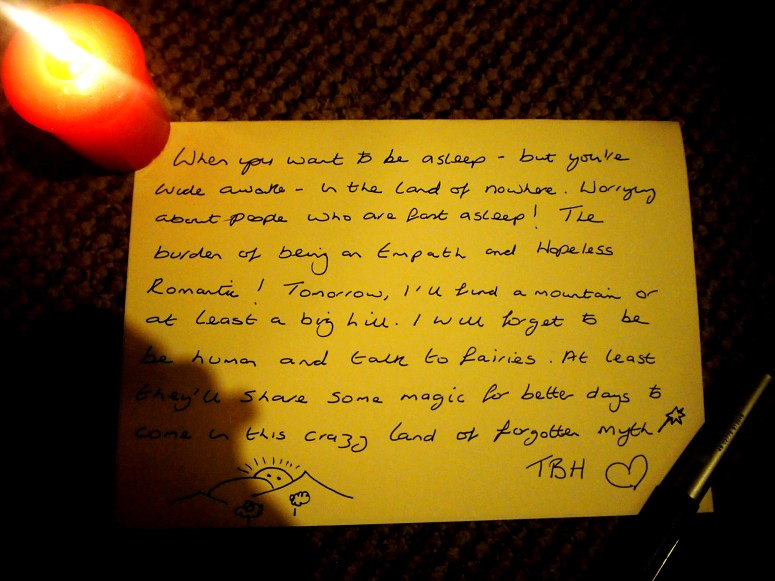 When you want to be asleep - but you're
wide awake - in the land of nowhere. Worrying
about people who are fast asleep! The
burden of being an Empath and Hopeless
Romantic! Tomorrow, I'll find a mountain or
at least a big hill. I will forget to be
be human and talk to fairies. At least
they'll share some magic for better days to
come in this crazy land of forgotten myth
TBH